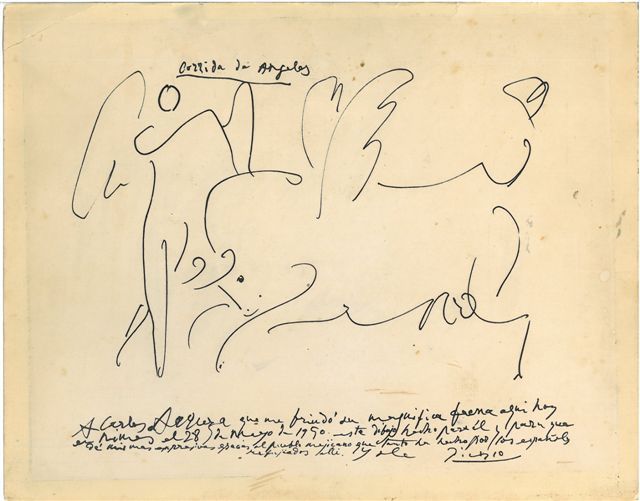 Corrida de Angeles
A Carlos Arruza que me brindó su magnifica faena aqui hoy
en Nimes el 28 de Mayo 1950. este dibujo hecho para él y para que
dé mis mas expresivas gracias al pueblo mejicano que tanto ha hecho por los españoles
refugiados alli. Y ole Picasso